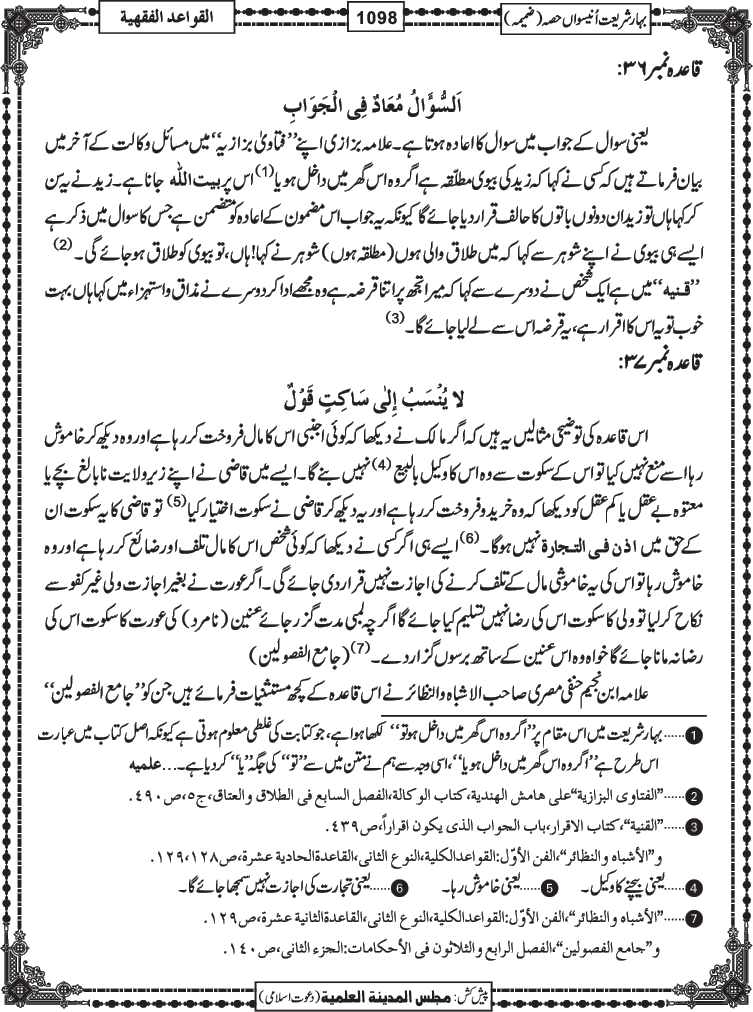 بہار شریعت اُنیسواں حصہ (ضمیمہ)
1098
القواعد الفقهية
قاعدہ نمبر ۳۶:
اَلسُّؤَالُ مُعَادٌ فِى الْجَوَابِ
یعنی سوال کے جواب میں سوال کا اعادہ ہوتا ہے۔ علامہ بزازی اپنے ”فتاویٰ بزازیہ“ میں مسائل وکالت کے آخر میں
بیان فرماتے ہیں کہ کسی نے کہا کہ زید کی بیوی مطلّقہ ہے اگر وہ اس گھر میں داخل ہو یا(1) اس پر بیت اللہ جانا ہے۔ زید نے یہ سن
کر کہا ہاں تو زید ان دونوں باتوں کا حالف قرار دیا جائے گا کیونکہ یہ جواب اس مضمون کے اعادہ کو متضمن ہے جس کا سوال میں ذکر ہے
ایسے ہی بیوی نے اپنے شوہر سے کہا کہ میں طلاق والی ہوں (مطلقہ ہوں) شوہر نے کہا! ہاں، تو بیوی کو طلاق ہو جائے گی۔(2)
”قنیہ“ میں ہے ایک شخص نے دوسرے سے کہا کہ میرا تجھ پر اتنا قرضہ ہے وہ مجھے ادا کر دوسرے نے مذاق و استہزاء میں کہا ہاں بہت
خوب تو یہ اس کا اقرار ہے، یہ قرضہ اس سے لے لیا جائے گا۔(3)
قاعدہ نمبر ۳۷:
لا يُنْسَبُ إِلٰى سَاكِتٍ قَوْلٌ
اس قاعدہ کی توضیحی مثالیں یہ ہیں کہ اگر مالک نے دیکھا کہ کوئی اجنبی اس کا مال فروخت کر رہا ہے اور وہ دیکھ کر خاموش
رہا اسے منع نہیں کیا تو اس کے سکوت سے وہ اس کا وکیل بالبیع(4) نہیں بنے گا۔ ایسے میں قاضی نے اپنے زیر ولایت نابالغ بچے یا
معتوہ بے عقل یا کم عقل کو دیکھا کہ وہ خرید و فروخت کر رہا ہے اور یہ دیکھ کر قاضی نے سکوت اختیار کیا(5) تو قاضی کا یہ سکوت ان
کے حق میں اذن فی التجارة نہیں ہوگا۔(6) ایسے ہی اگر کسی نے دیکھا کہ کوئی شخص اس کا مال تلف اور ضائع کر رہا ہے اور وہ
خاموش رہا تو اس کی یہ خاموشی مال کے تلف کرنے کی اجازت نہیں قرار دی جائے گی۔ اگر عورت نے بغیر اجازت ولی غیر کفو سے
نکاح کر لیا تو ولی کا سکوت اس کی رضا نہیں تسلیم کیا جائے گا اگرچہ لمبی مدت گزر جائے عنین (نامرد) کی عورت کا سکوت اس کی
رضا نہ مانا جائے گا خواہ وہ اس عنین کے ساتھ برسوں گزار دے۔(7) (جامع الفصولین)
علامہ ابن نجیم حنفی مصری صاحب الاشباہ والنظائر نے اس قاعدہ کے کچھ مستثنیات فرمائے ہیں جن کو ”جامع الفصولین“
1......بہار شریعت میں اس مقام پر ”اگر وہ اس گھر میں داخل ہو تو“ لکھا ہوا ہے، جو کتابت کی غلطی معلوم ہوتی ہے کیونکہ اصل کتاب میں عبارت
اس طرح ہے ”اگر وہ اس گھر میں داخل ہو یا“، اسی وجہ سے ہم نے متن میں سے ”تو“ کی جگہ ”یا“ کر دیا ہے۔... علمیه
2......”الفتاوى البزازية“على هامش الهندية، كتاب الوكالة، الفصل السابع فى الطلاق والعتاق، ج٥، ص٤٩٠.
3......”القنية“، كتاب الاقرار، باب الجواب الذى يكون اقراراً، ص٤٣٩.
و”الأشباه والنظائر“، الفن الأوّل: القواعد الكلية، النوع الثانى، القاعدة الحادية عشرة، ص١٢٨، ١٢٩.
4......یعنی بیچنے کا وکیل۔ 5......یعنی خاموش رہا۔ 6......یعنی تجارت کی اجازت نہیں سمجھا جائے گا۔
7......”الأشباه والنظائر“، الفن الأوّل: القواعد الكلية، النوع الثانى، القاعدة الثانية عشرة، ص١٢٩.
و”جامع الفصولين“، الفصل الرابع والثلاثون فى الأحكامات: الجزء الثانى، ص١٤٠.
پیش کش: مجلس المدينة العلمية (دعوت اسلامی)